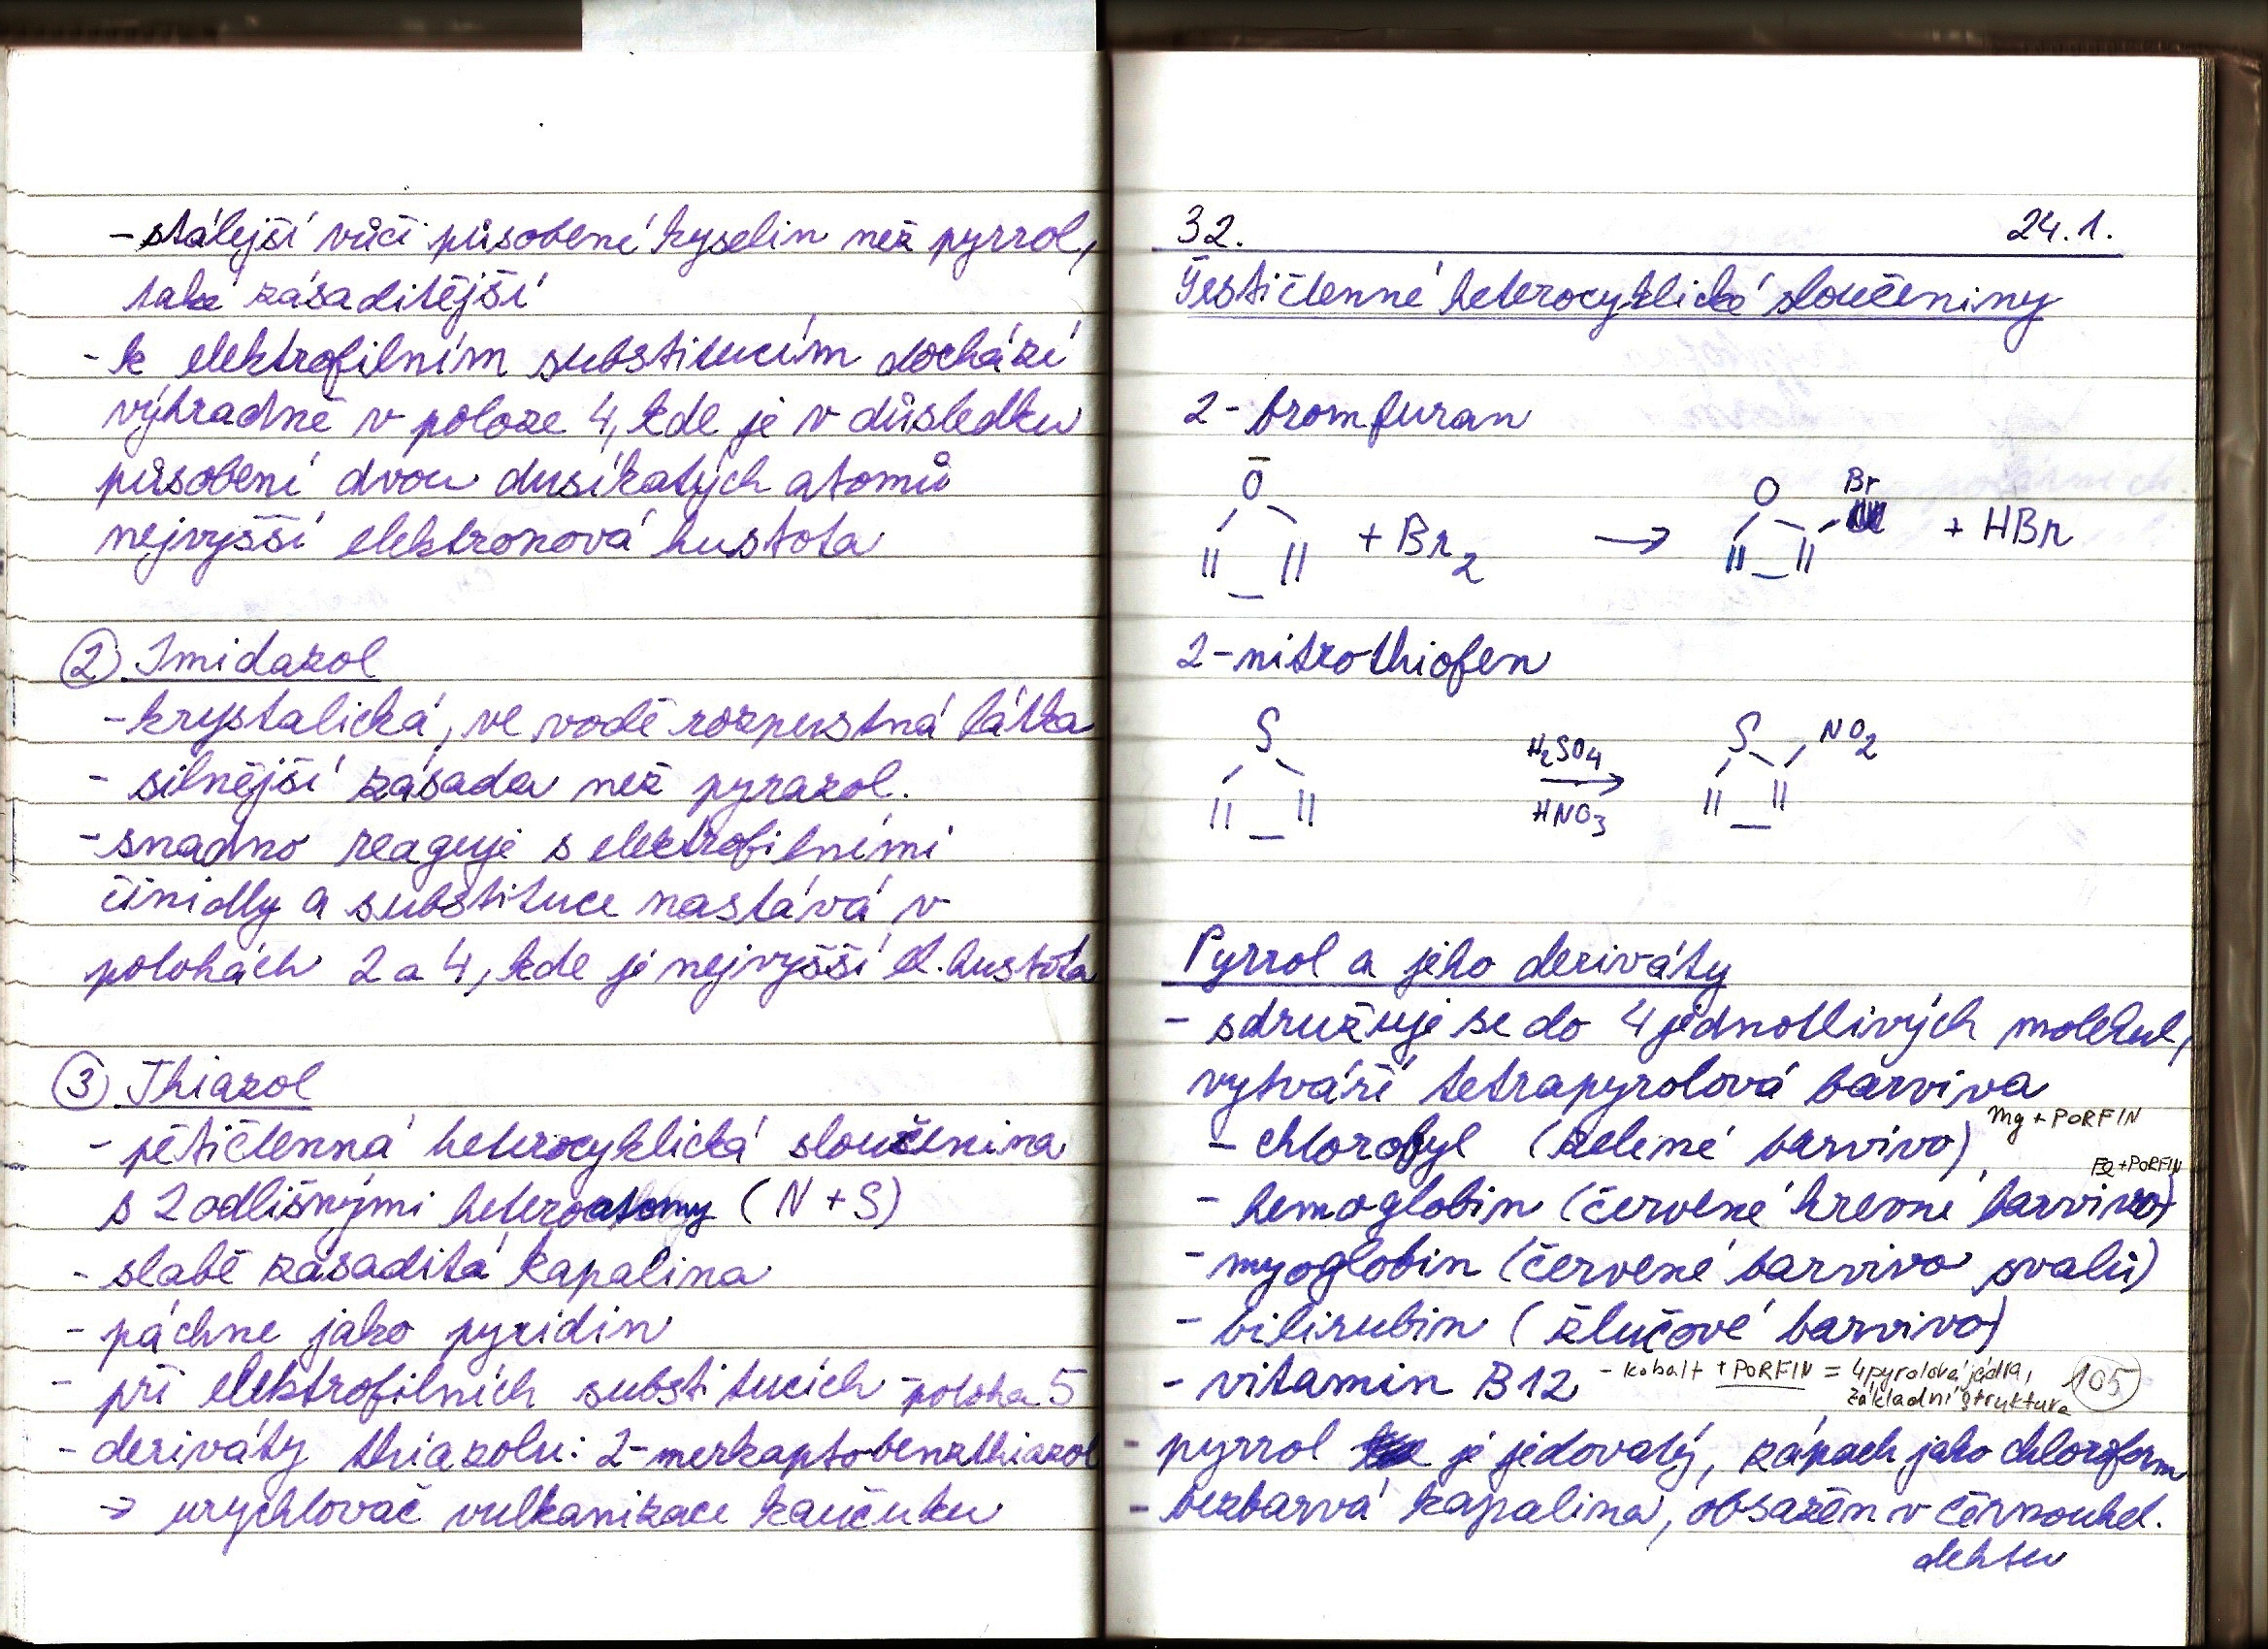 - stálejší vůči působení kyselin než pyrrol,
také zásaditější
- k elektrofilním substitucím dochází
výhradně v poloze 4, kde je v důsledku
působení dvou dusíkatých atomů
nejvyšší elektronová hustota
2 Imidazol
- krystalická, ve vodě rozpustná látka
- silnější zásada než pyrazol.
- snadno reaguje s elektrofilními
činidly a substituce nastává v
polohách 2 a 4, kde je nejvyšší el. hustota
3 Thiazol
- pětičlenná heterocyklická sloučenina
s 2 odlišnými heteroatomy (N+S)
- slabě zásaditá kapalina
- páchne jako pyridin
- při elektrofilních substitucích - poloha 5
- deriváty thiazolu: 2-merkaptobenzthiazol
→ urychlovač vulkanizace kaučuku
32. 24.1.
Šestičlenné heterocyklické sloučeniny
2-bromfuran
O + Br2 → O Br + HBr
2-nitrothiofen
S H2SO4 HNO3 → S NO2
Pyrrol a jeho deriváty
- sdružuje se do 4 jednotlivých molekul,
vytváří tetrapyrolová barviva
- chlorofyl (zelené barvivo) Mg + PORFIN
- hemoglobin (červené krevní barvivo) Fe + PORFIN
- myoglobin (červené barvivo svalů)
- bilirubin (žlučové barvivo)
- vitamin B12 - kobalt + PORFIN = 4 pyrolová jádra,
základní struktura
105
- pyrrol je jedovatý, zápach jako chloroform
- bezbarvá kapalina, obsažen v černouhel.
dehtu